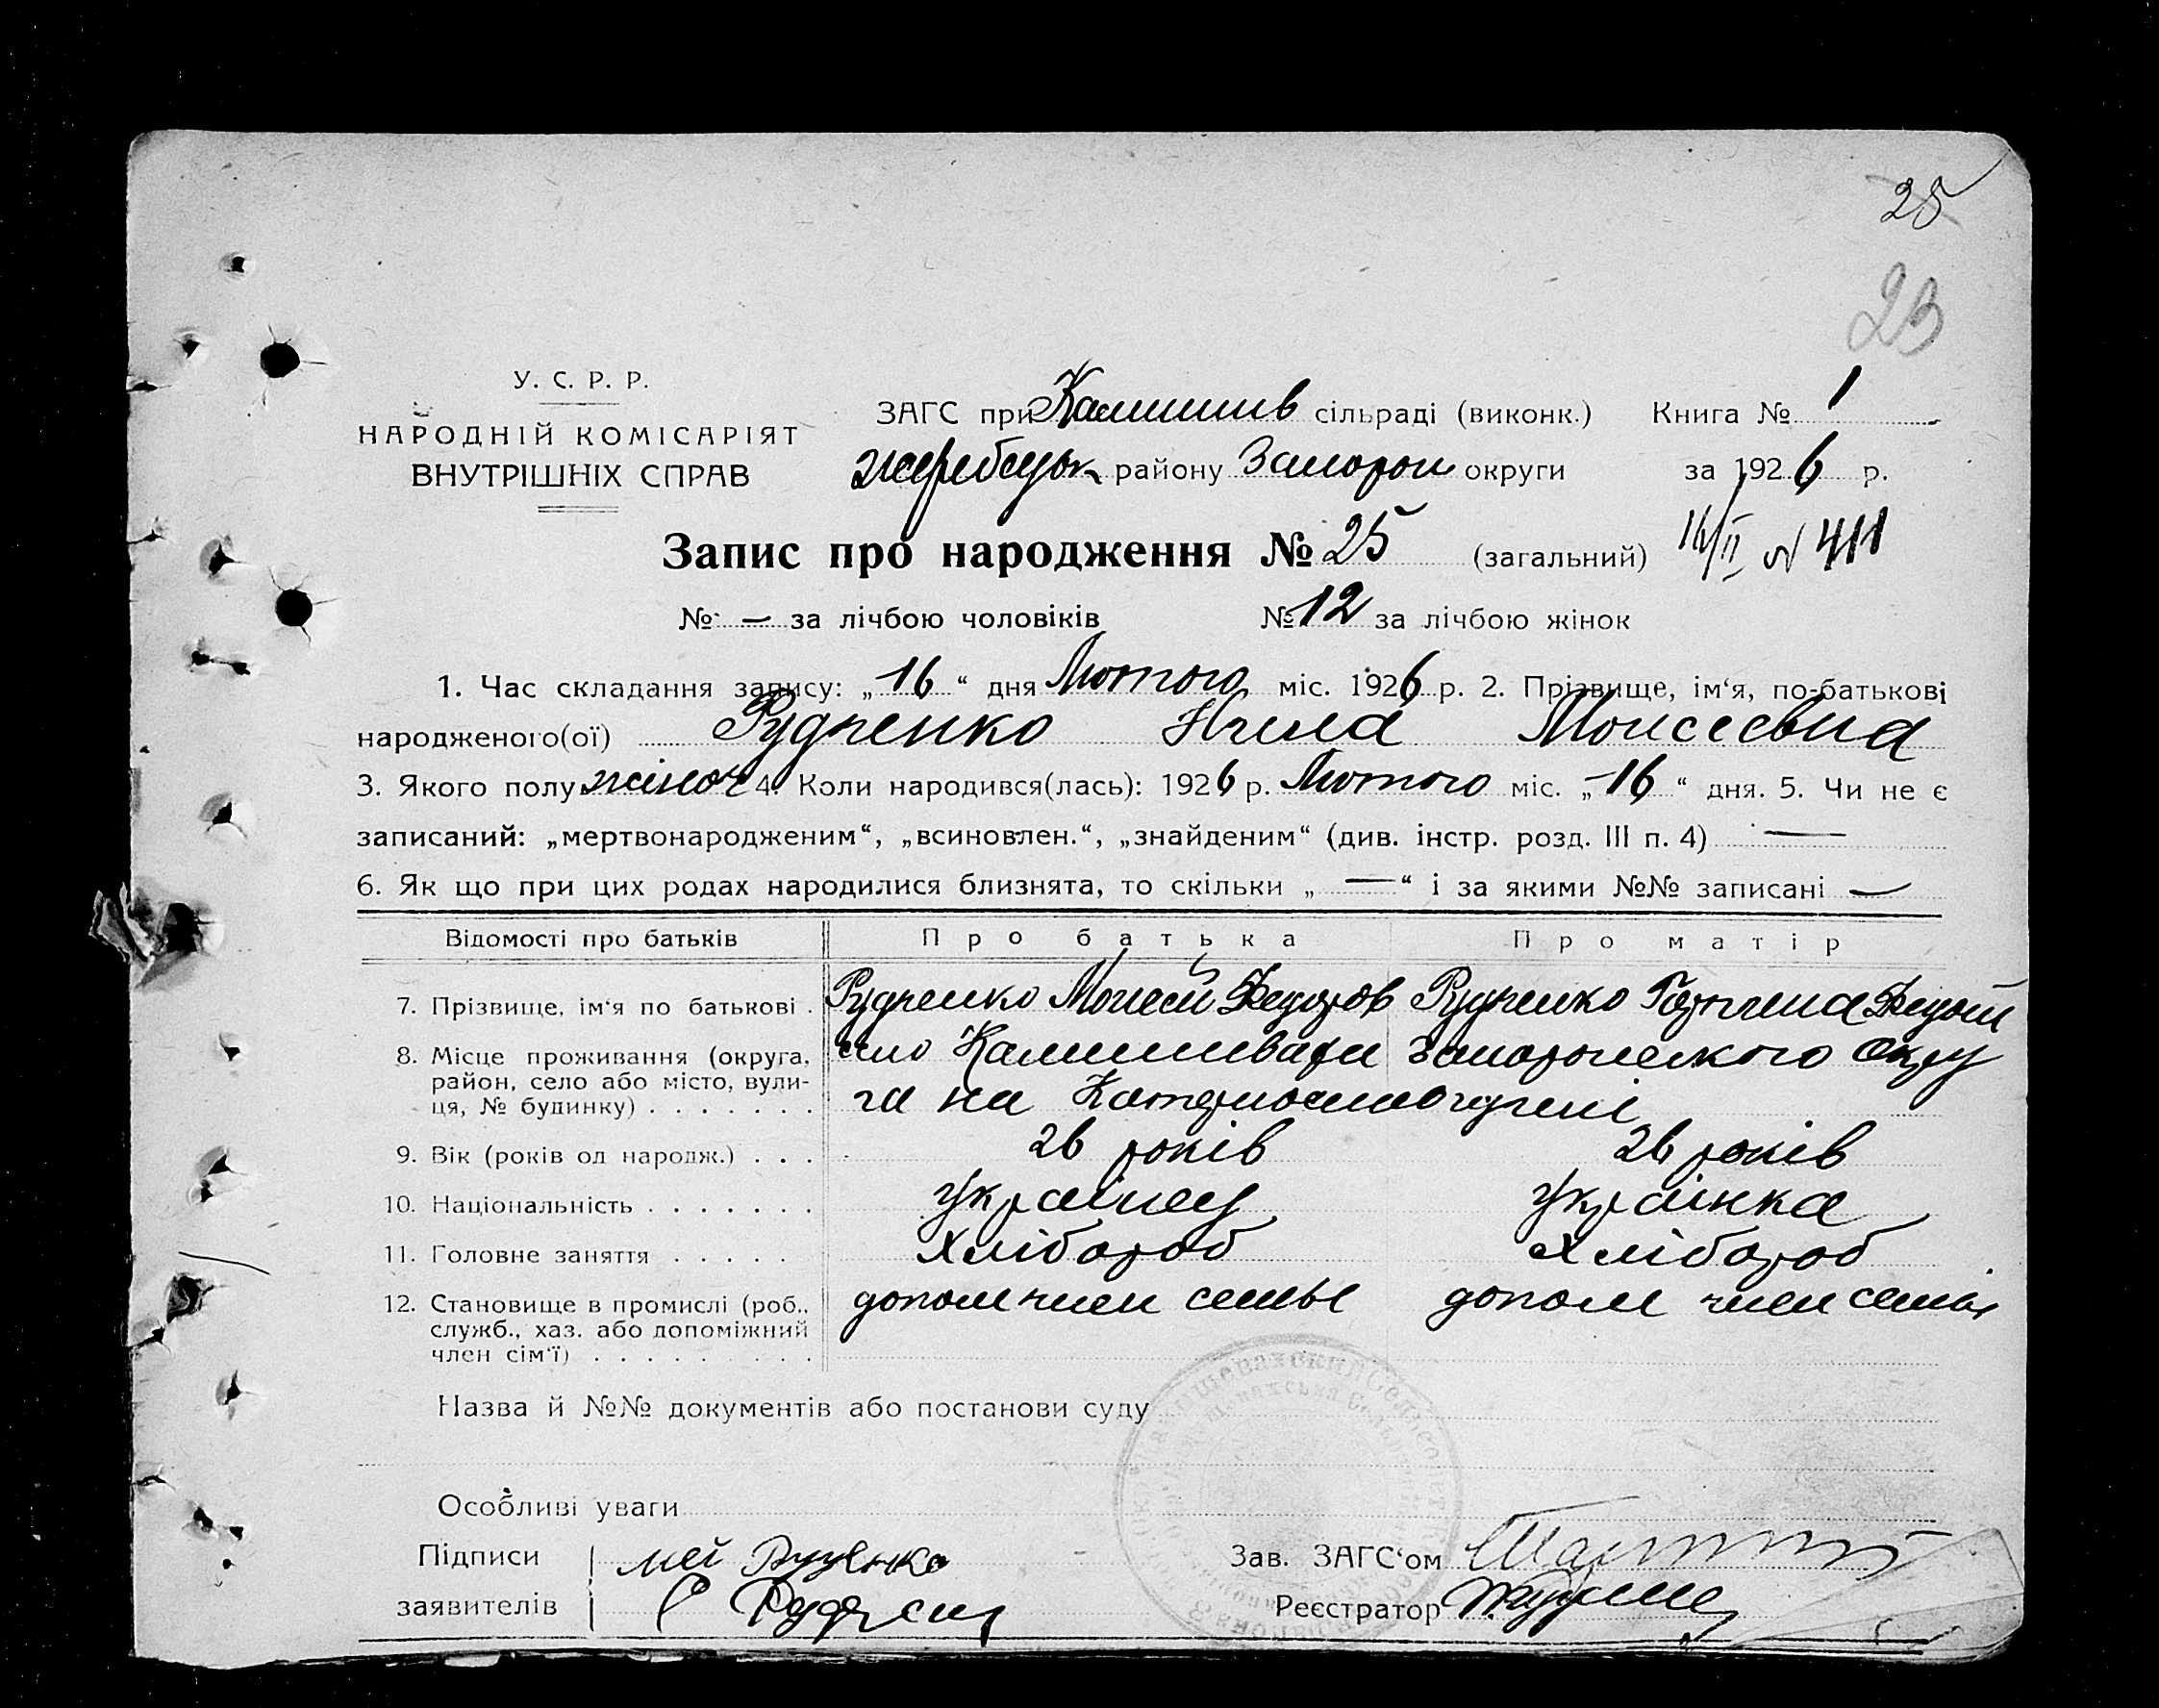 25
23
У. С. Р. Р.
НАРОДНІЙ КОМІСАРІЯТ
ВНУТРІШНІХ СПРАВ
ЗАГС при Камишив сільраді (виконк.) Книга № 1
жеребецьк району Запорож округи за 1926 р.
Запис про народження № 25 (загальний) 16/II N 411
№ — за лічбою чоловіків № 12 за лічбою жінок
1. Час складання запису: „16“ дня Лютого міс. 1926 р. 2. Прізвище, ім‘я, по-батькові
народженого(ої) Рудченко Нина Моисеевна
3. Якого полу жіноч 4. Коли народився(лась): 1926 р. Лютого міс. „16“ дня. 5. Чи не є
записаний: „мертвонародженим“, „всиновлен.“, „знайденим“ (див. інстр. розд. III п. 4) —
6. Як що при цих родах народилися близнята, то скільки „ — “ і за якими №№ записані —
Відомості про батьків Про батька Про матір
7. Прізвище, ім‘я по батькові . Рудченко Моисей Федоров Рудченко Федот
8. Місце проживання (округа, село Запорожского Окру
район, село або місто, вули-
ця, № будинку) . . . . . . . га на Катеринославщині
9. Вік (років од народж.) . . . 26 років 26 років
10. Національність . . . . . . . Українец Українка
11. Головне заняття . . . . . Хлібороб Хлібороб
12. Становище в промислі (роб., допом член семьи допом член семьи
служб., хаз. або допоміжний
член сім‘ї) . . . . . . . . .
Назва й №№ документів або постанови суду
Особливі уваги
Підписи
заявителів
Зав. ЗАГС‘ом
Реєстратор